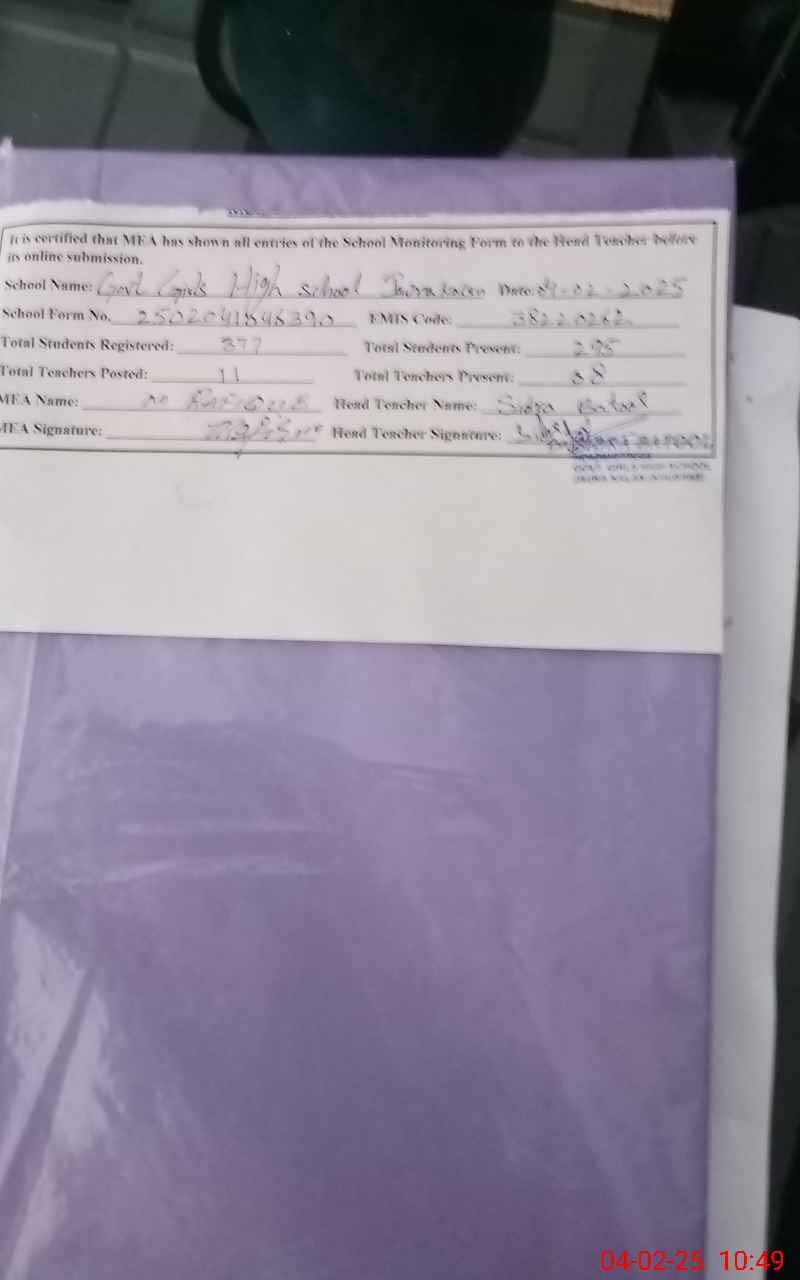 It is certified that MEA has shown all entries of the School Monitoring Form to the Head Teacher before
its online submission.
School Name: Govt Girls High school Date: 04-02-2025
School Form No. EMIS Code: 38220262
Total Students Registered: 377 Total Students Present: 295
Total Teachers Posted: 11 Total Teachers Present: 08
MEA Name: Head Teacher Name: Sidra Batool
MEA Signature: Head Teacher Signature:
04-02-25 10:49